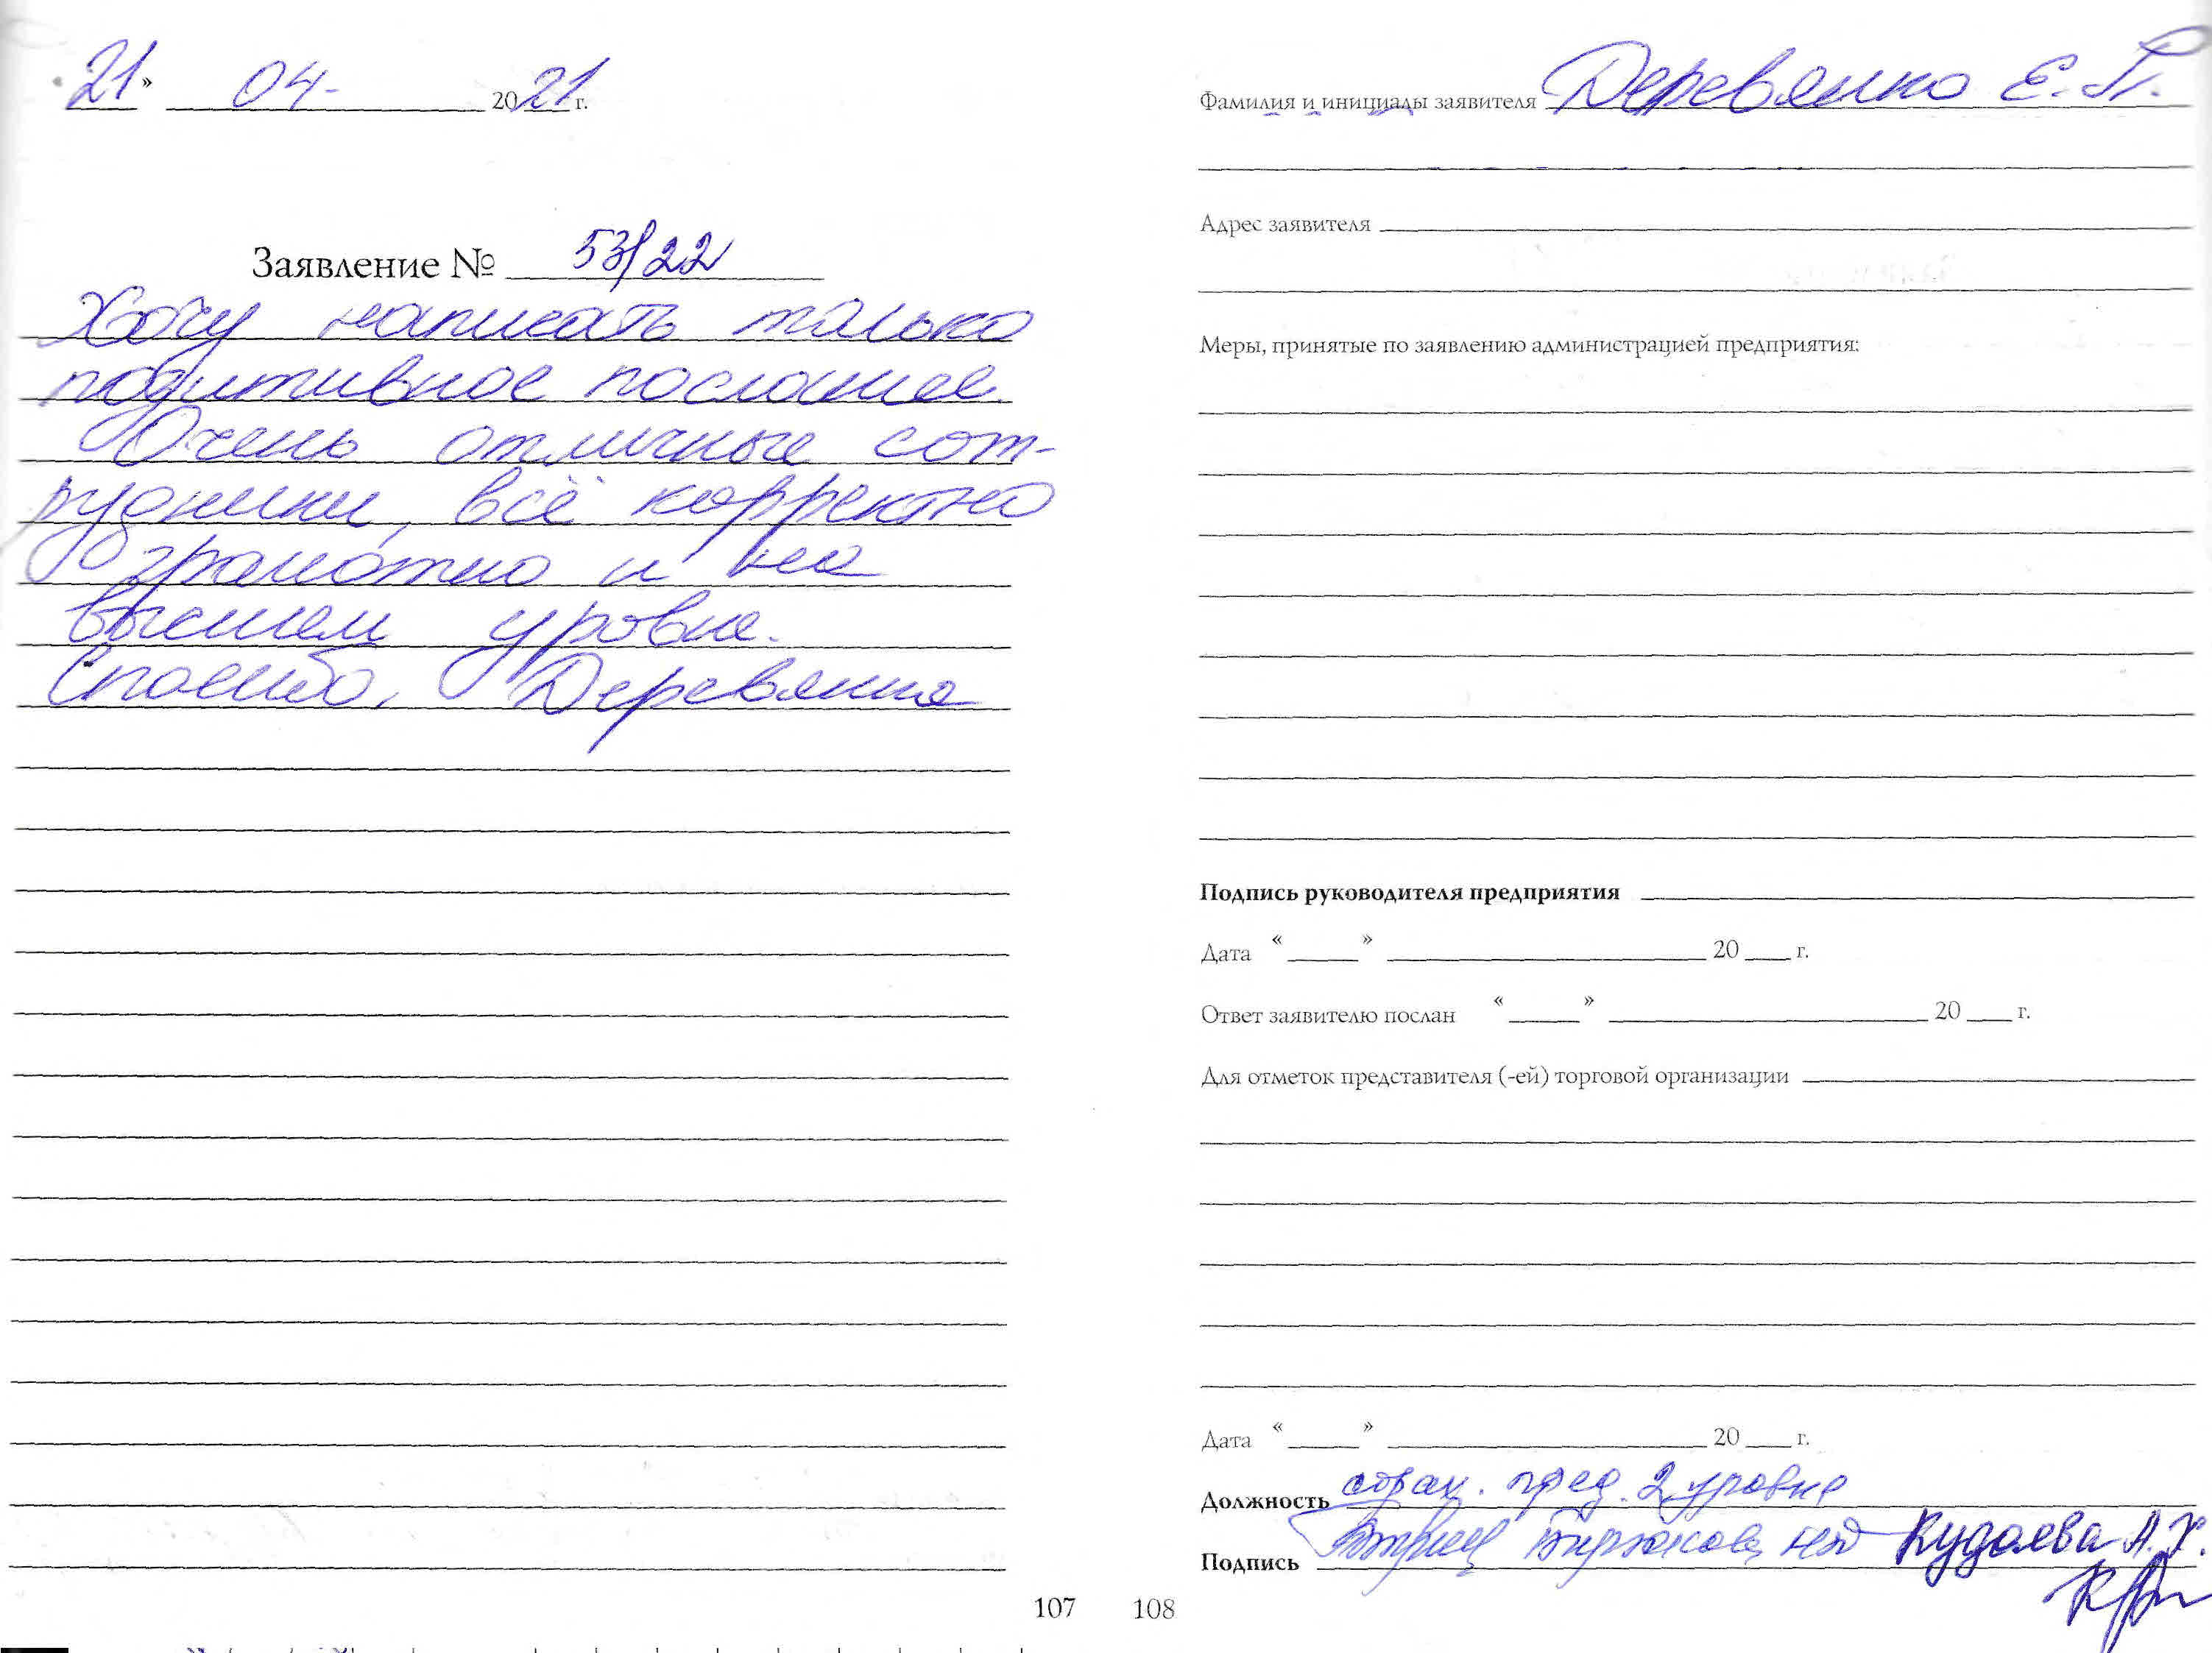 21» 04- 2021 г.
Заявление № 53/22
Хочу написать только
позитивное послание.
Очень отличные сот-
рудники, всё корректно
грамотно и на
высшем уровне.
Спасибо. Деревянко
107
Фамилия и инициалы заявителя Деревянко Е. П.
Адрес заявителя
Меры, принятые по заявлению администрацией предприятия:
Подпись руководителя предприятия
Дата « » 20 г.
Ответ заявителю послан « » 20 г.
Для отметок представителя (-ей) торговой организации
Дата « » 20 г.
Должность пред. 2 уровня
Подпись Кудаева А. Х.
108